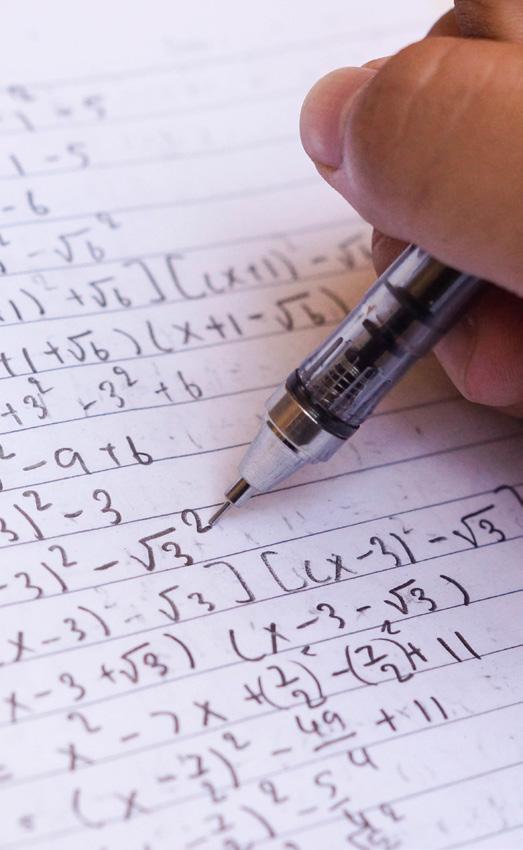 ² - 1² - 5
1 - 5
- 6
² - √6²
+1)² + √6 ] [(x+1)² - √6
+1 + √6 ) (x+1 - √6 )
+3² - 3² + 6
² - 9 + 6
3)² - 3
-3)² - √3²
x - 3) - √3 ] [(x - 3)² - √3 ]
x - 3 + √3 ) (x - 3 - √3 )
= x² - 7x + (7/2)² - (7/2)² + 11
= (x - 7/2)² - 49/4 + 11
7/2)² - 5/4